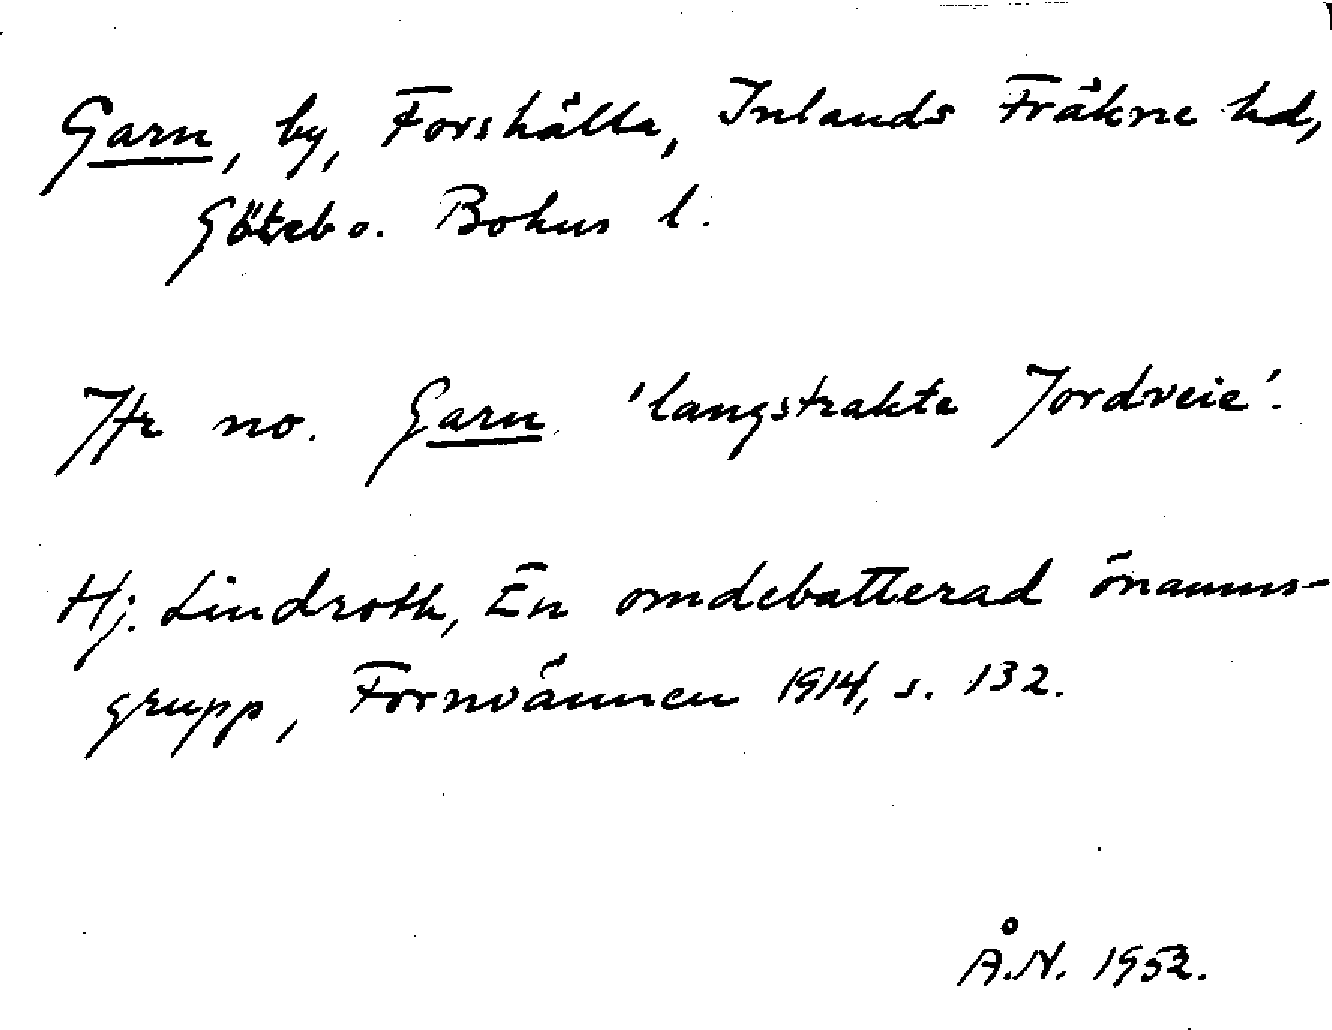 Garn, by, Forshälla, Inlands Fräkne hd,
Götebo. Bohus l.
Jfr no. Garn 'langstrakte Jordveie'.
Hj. Lindroth, En omdebatterad önamns-
grupp, Fornvännen 1914, s. 132.
Å.N. 1952.